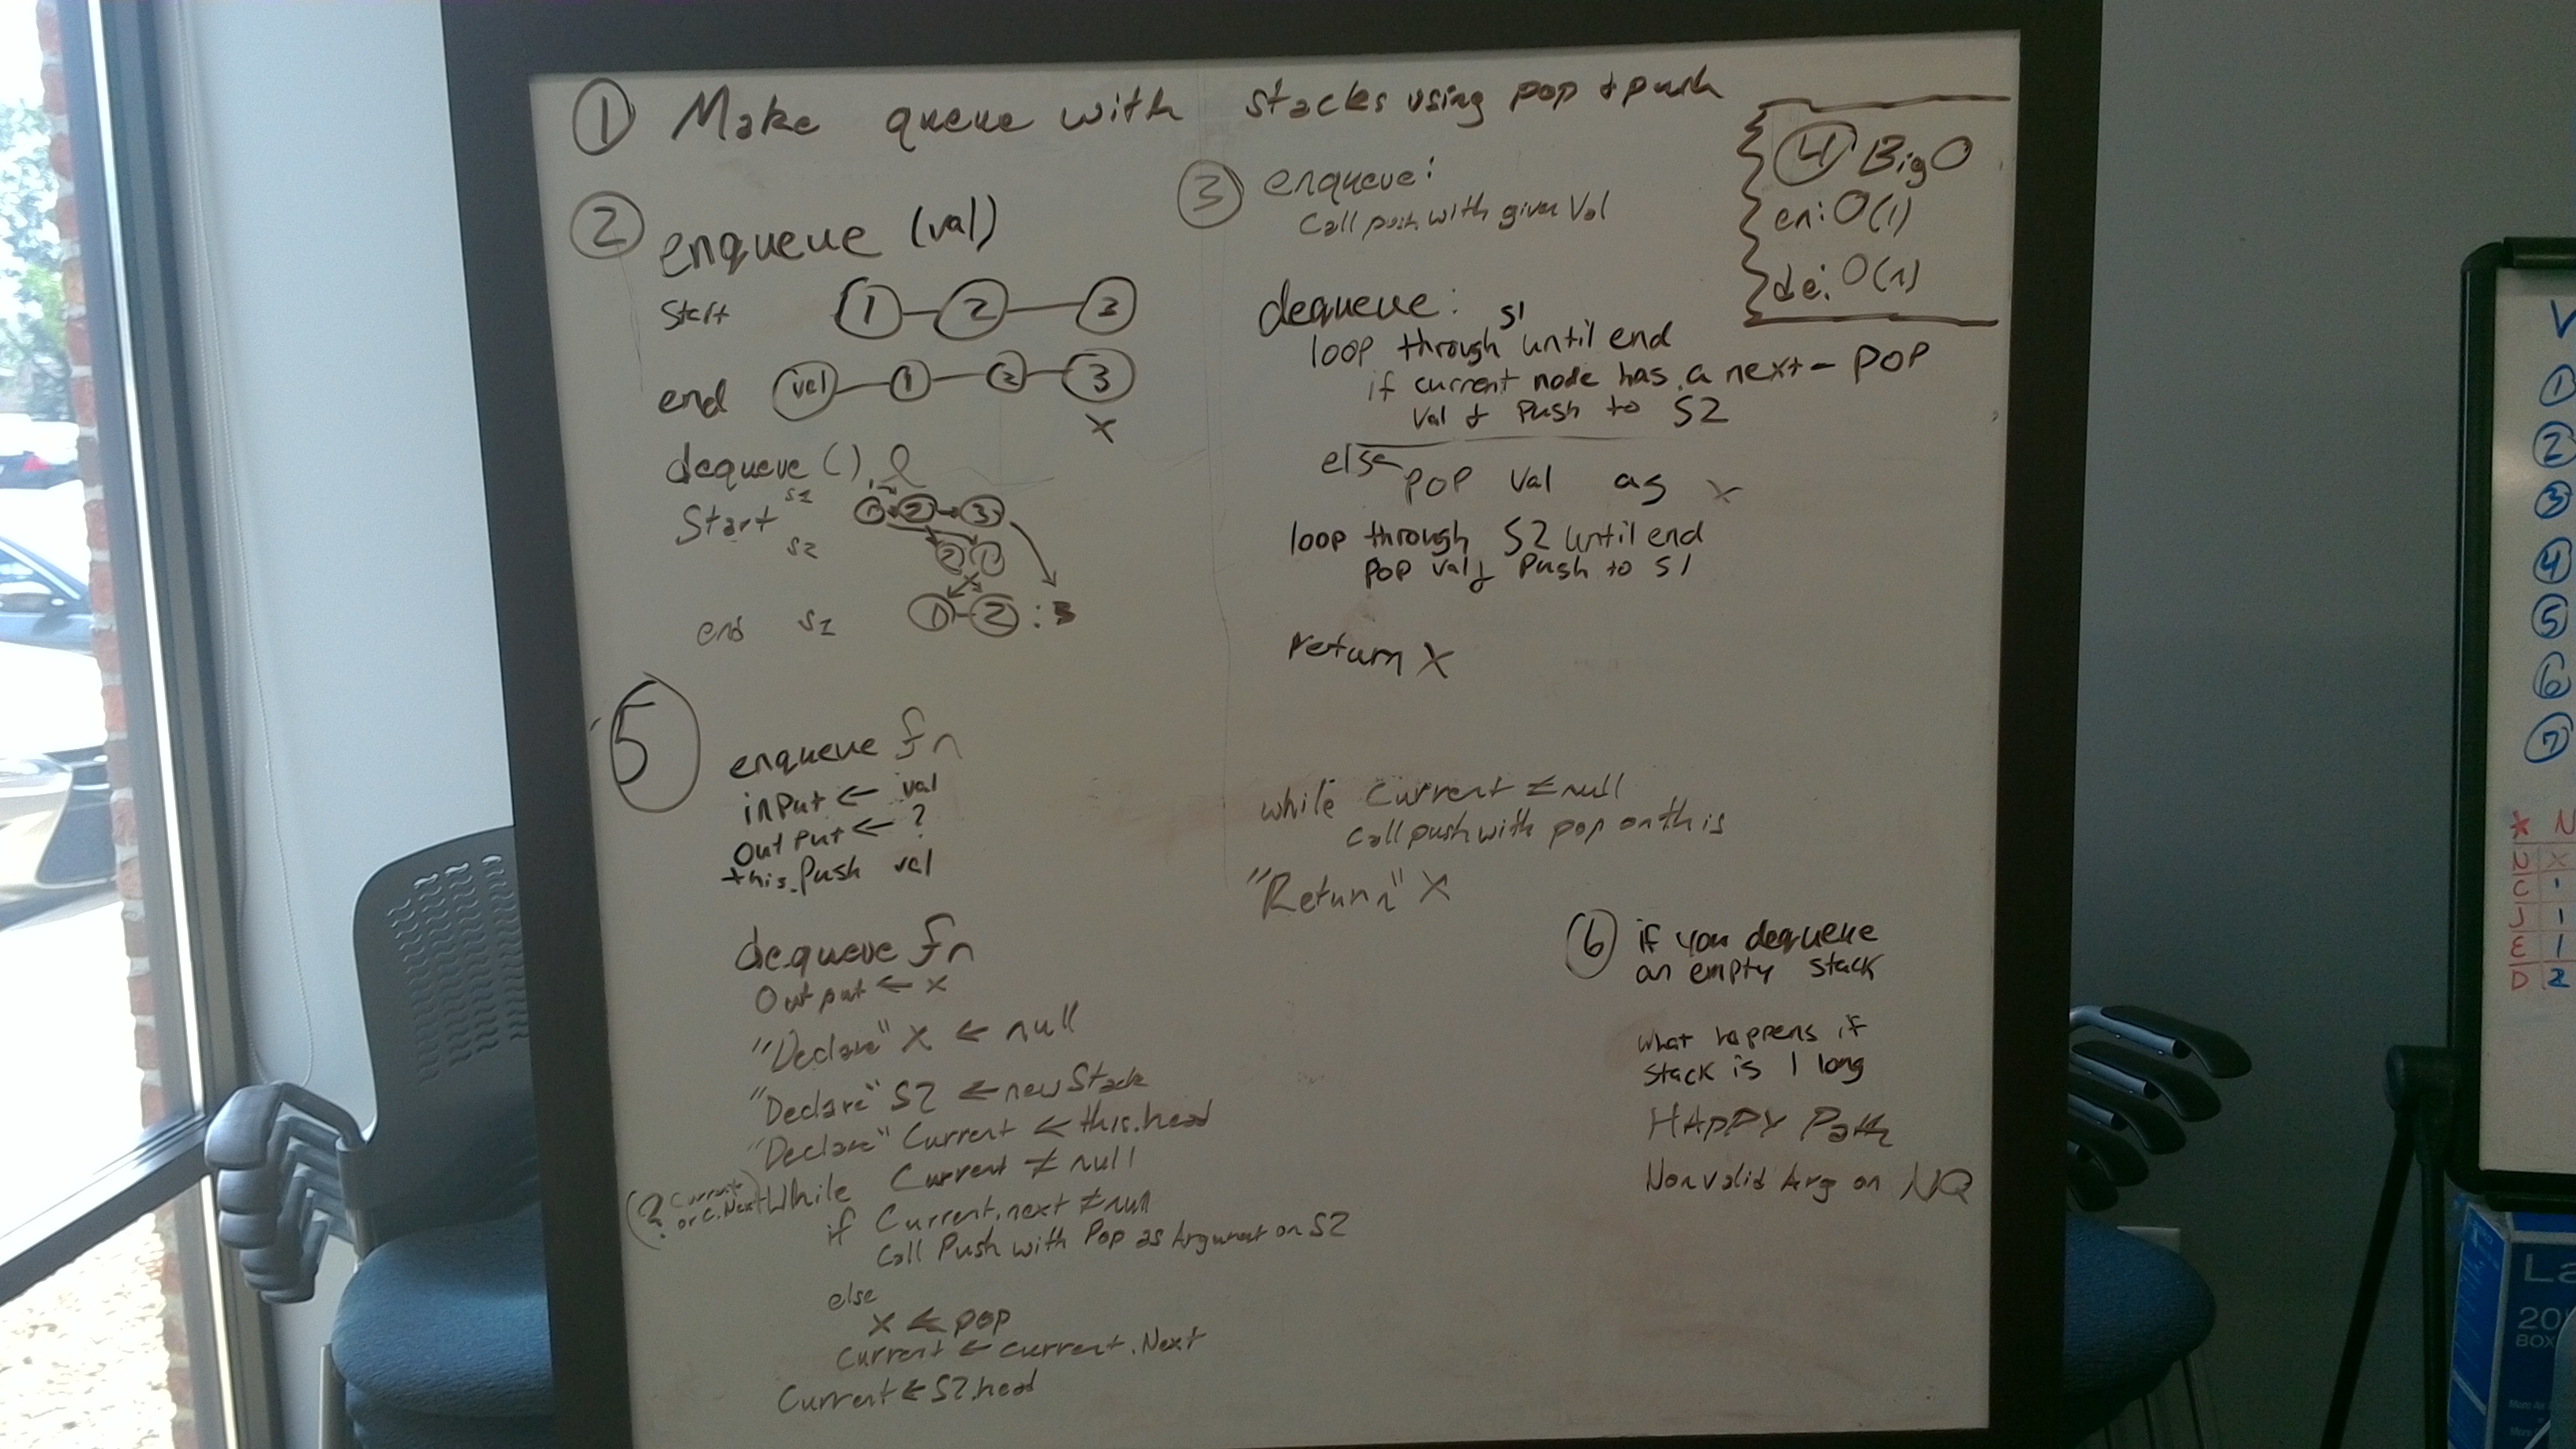 ① Make queue with stacks using pop + push
② enqueue (val)
start ① ② ③
end val ① ② ③
x
dequeue ()
Start S1 ① ② ③
S2 ② ①
end S1 ① ② : 3
③ enqueue:
Call push with given Val
dequeue:
loop through S1 until end
if current node has a next - POP
val + Push to S2
else
POP Val as x
loop through S2 until end
pop val + Push to S1
return X
④ Big O
en: O(1)
de: O(n)
⑤
enqueue fn
input ← val
output ← ?
this.Push val
dequeue fn
Output ← x
"Declare" X ← null
"Declare" S2 ← new Stack
"Declare" Current ← this.head
(? Current or C.Next) While Current ≠ null
if Current.next ≠ null
Call Push with Pop as Argument on S2
else
X ← pop
Current ← current.Next
Current ← S2.head
while Current ≠ null
Call push with pop on this
"Return" X
⑥ if you dequeue
an empty stack
what happens if
stack is 1 long
HAPPY Path
Non valid Arg on NQ
V
①
②
③
④
⑤
⑥
⑦
N
X
C
J 1
E 1
D 2
La
20
BOX